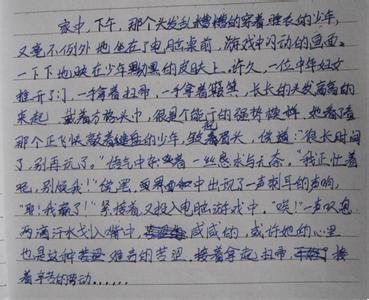 家中,下午,那个头发乱糟糟的穿着睡衣的少年,
又毫不例外地坐在了电脑桌前,游戏中闪动的画面。
一下下地映在少年黝黑的皮肤上,许久,一位中年妇女
推开了门,一手拿着扫帚,一手拿着,长长的头发高高的
束起,戴着方格头巾,很是个能干的强势模样,她看了看
那个正飞快敲着键盘的少年,皱起眉头,说道:“很长时间
了,别再玩了。”语气中带着一丝恳求与无奈。“我正忙着
呢,别烦我!”说罢,中出现了一声刺耳的声响,
“耶!我赢了!”紧接着又投入电脑游戏中,“唉!”一声叹息
两滴汗水划入嘴中,咸咸的,或许她的心里
也是这种难言的苦涩,接着拿起扫帚,接
着辛苦的劳动......